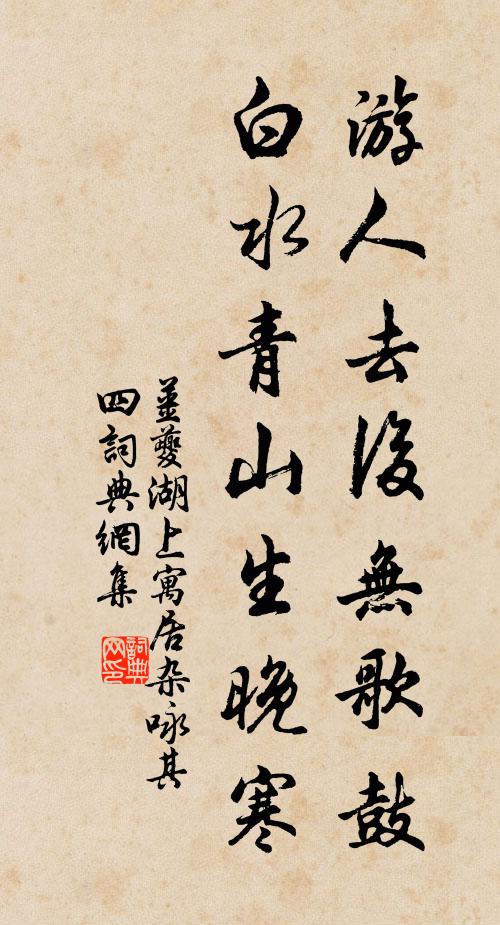 游人去後無歌鼓
白水青山生晚寒
姜夔湖上寓居杂咏其
四詞典網集
詞典网印